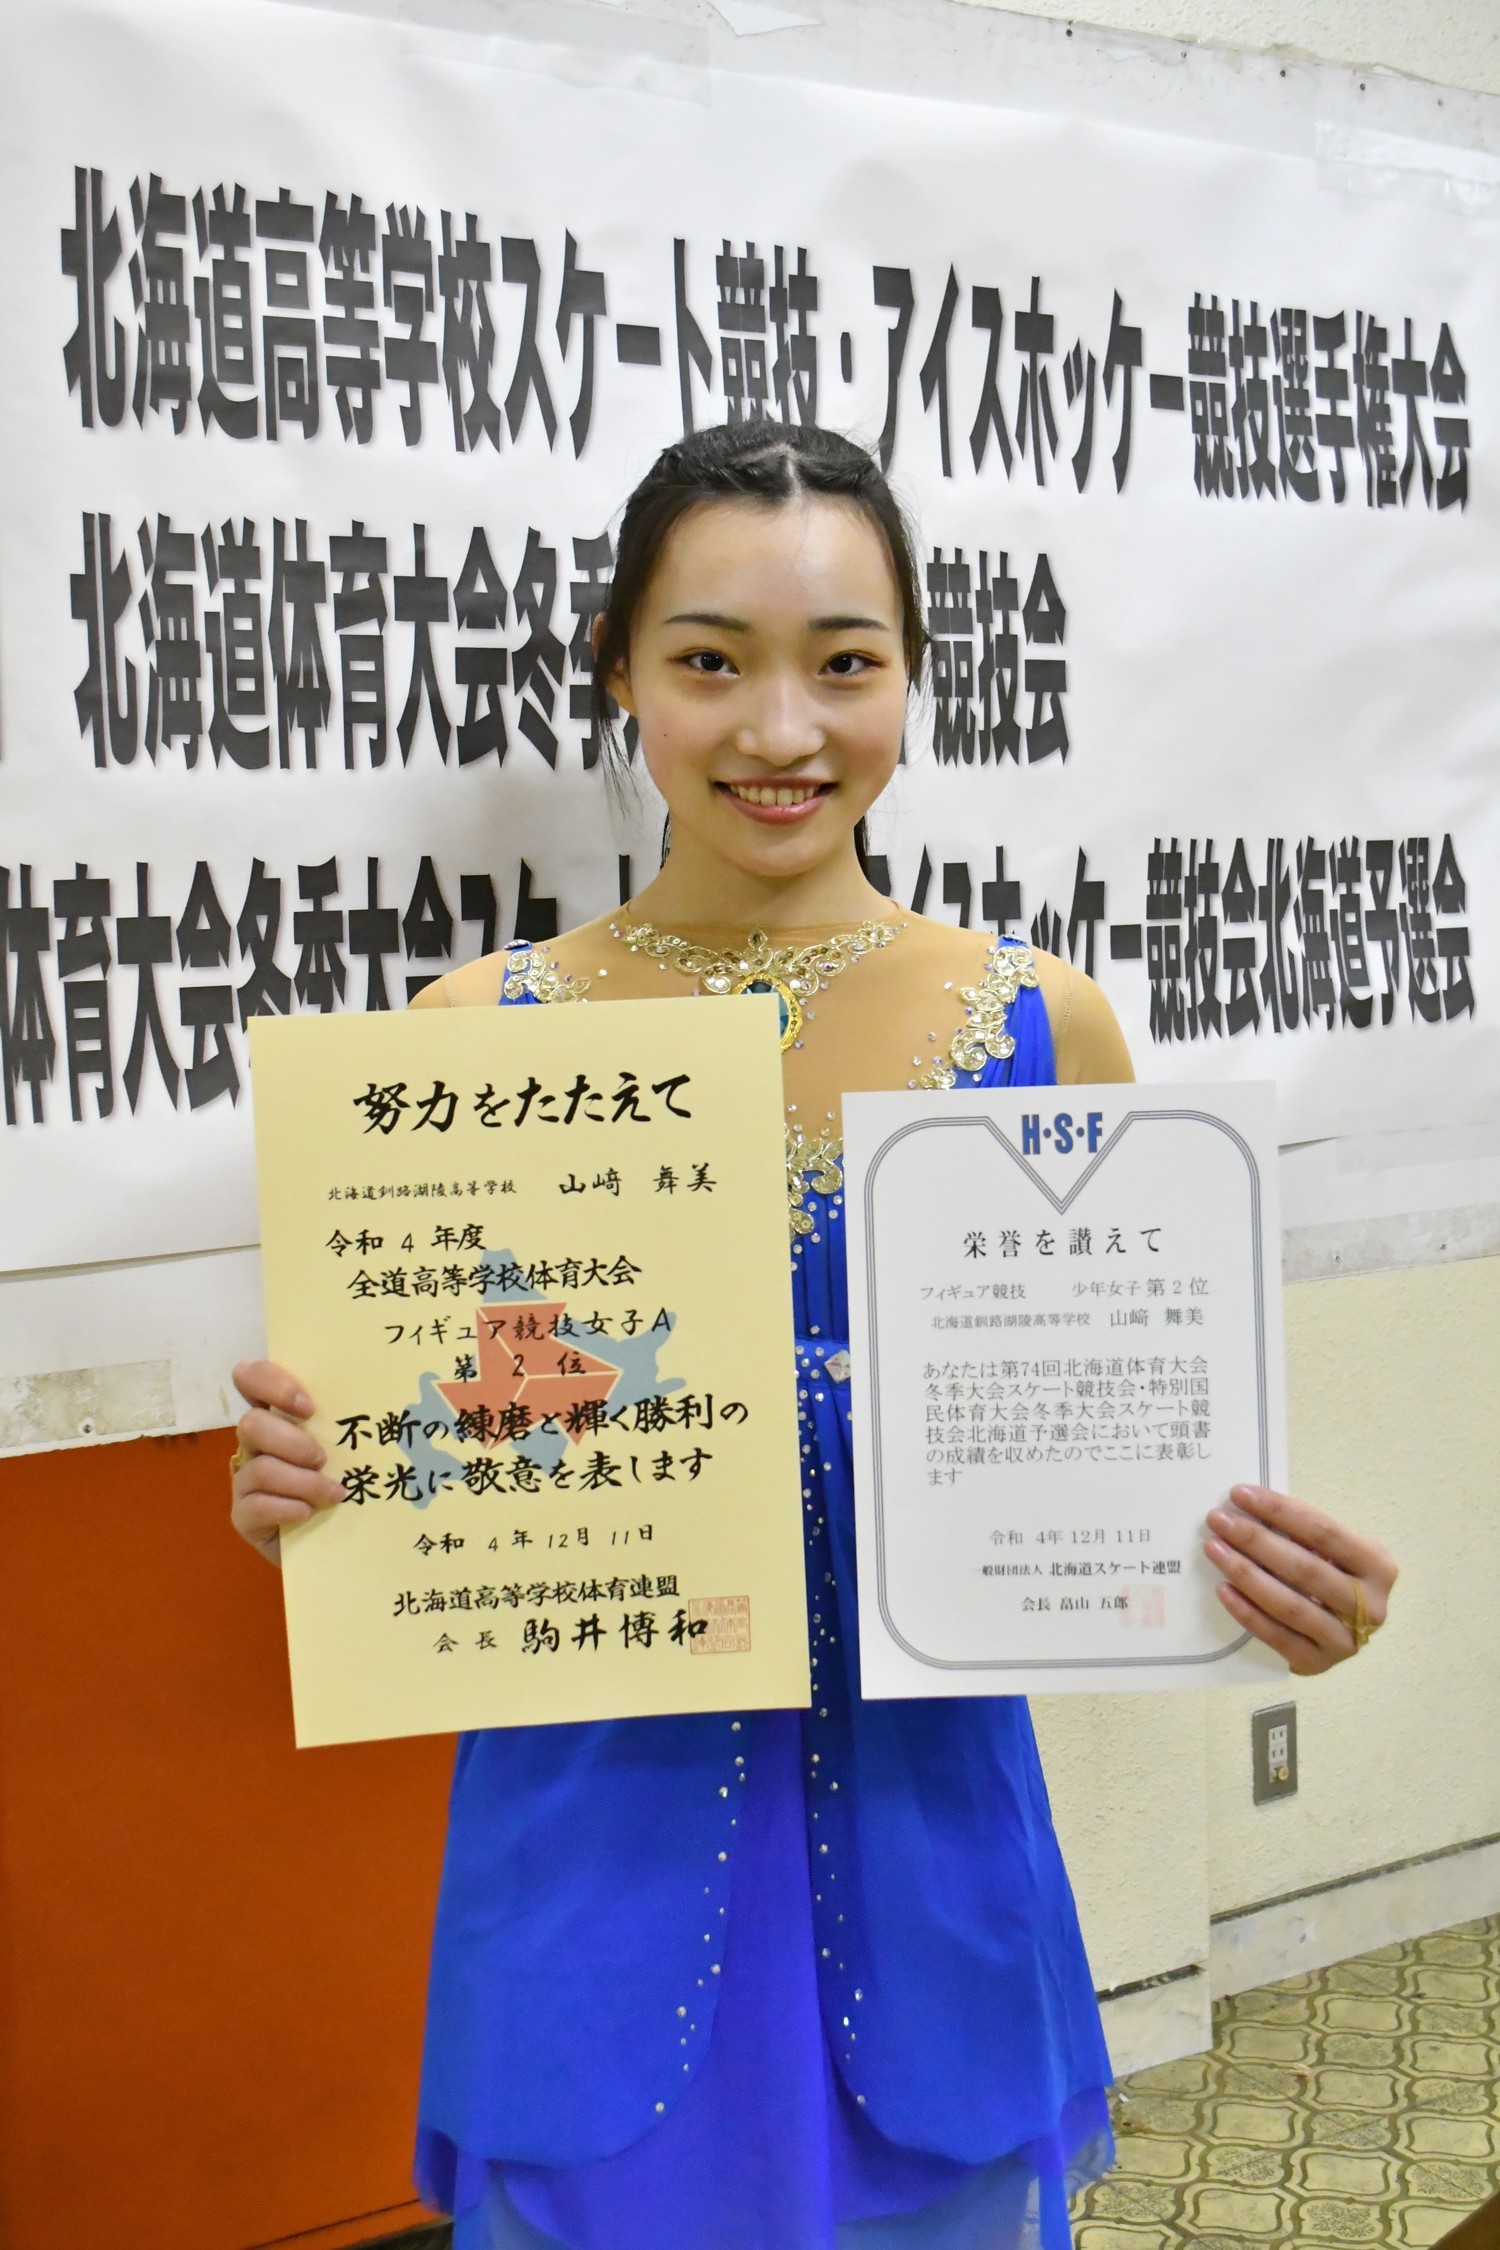 北海道高等学校スケート競技・アイスホッケー競技選手権大会
北海道体育大会冬季
競技会
体育大会冬季大会スケート
アイスホッケー競技会北海道予選会
努力をたたえて
北海道釧路湖陵高等学校 山﨑 舞美
令和 4 年度
全道高等学校体育大会
フィギュア競技女子A
第 2 位
不断の練磨と輝く勝利の
栄光に敬意を表します
令和 4 年 12月 11日
北海道高等学校体育連盟
会長 駒井博和
H・S・F
栄誉を讃えて
フィギュア競技 少年女子 第2位
北海道釧路湖陵高等学校 山﨑 舞美
あなたは第74回北海道体育大会
冬季大会スケート競技会・特別国
民体育大会冬季大会スケート競
技会北海道予選会において頭書
の成績を収めたのでここに表彰し
ます
令和 4年12月11日
一般財団法人 北海道スケート連盟
会長 畠山 五郎